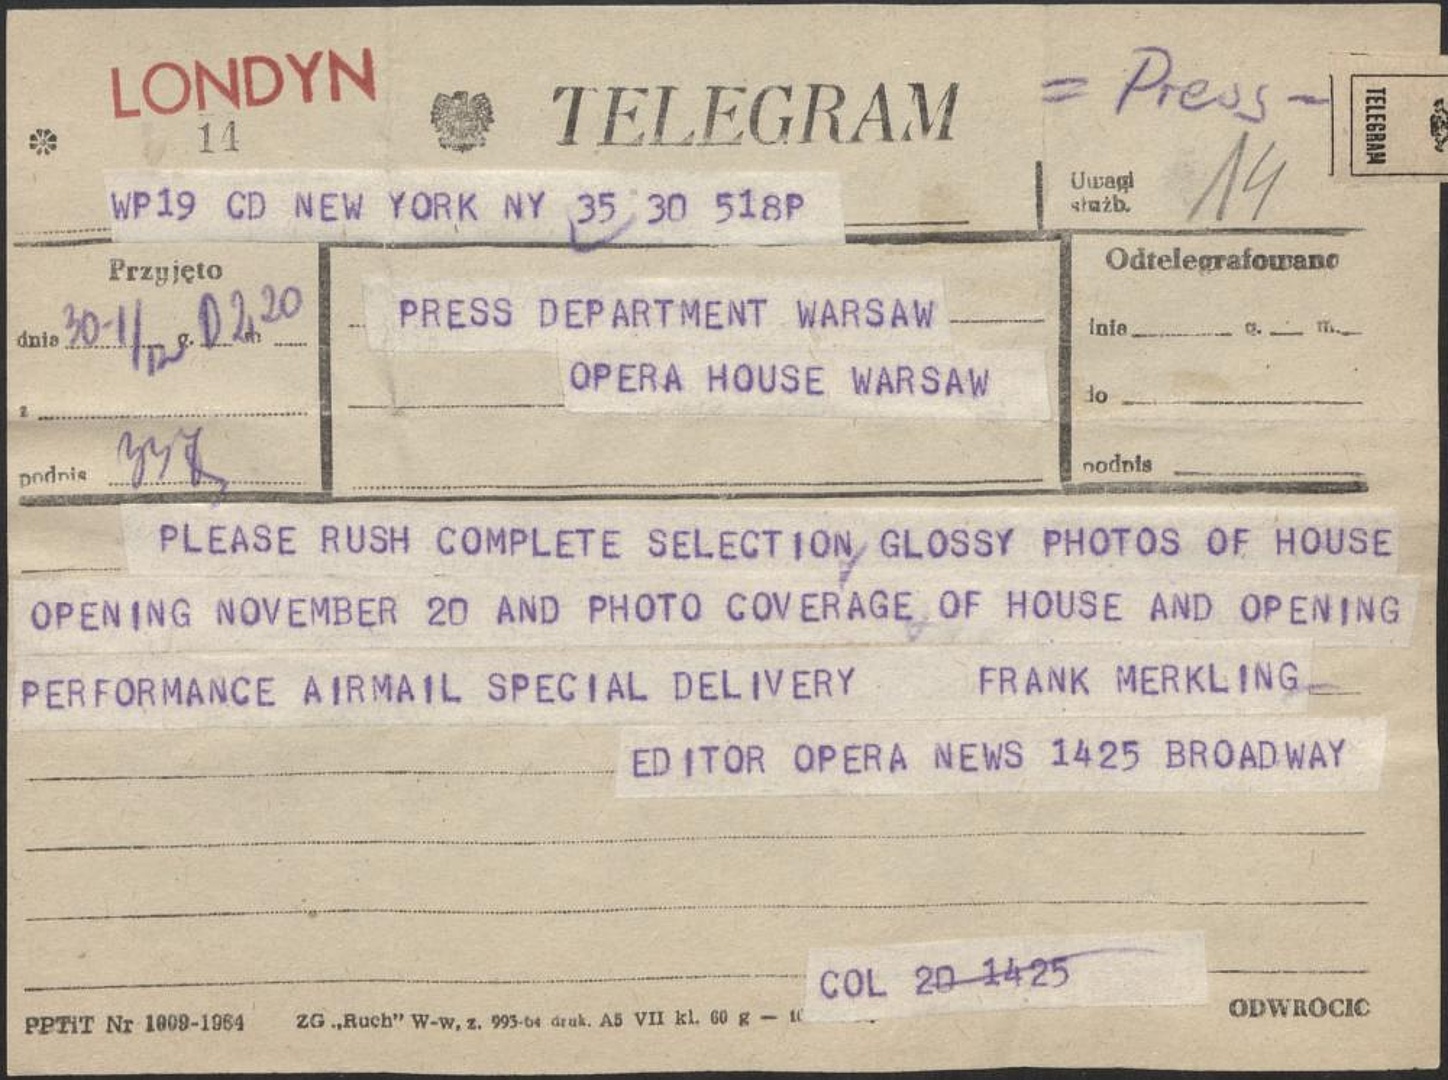 LONDYN
14
TELEGRAM
= Press -
TELEGRAM
Uwagi
służb.
14
WP19 CD NEW YORK NY 35 30 518P
Przyjęto
dnia 30-11 g. 02 20
z
podpis
PRESS DEPARTMENT WARSAW
OPERA HOUSE WARSAW
Odtelegrafowano
dnia g. m.
do
podpis
PLEASE RUSH COMPLETE SELECTION GLOSSY PHOTOS OF HOUSE
OPENING NOVEMBER 20 AND PHOTO COVERAGE OF HOUSE AND OPENING
PERFORMANCE AIRMAIL SPECIAL DELIVERY FRANK MERKLING
EDITOR OPERA NEWS 1425 BROADWAY
COL 20 1425
PPTiT Nr 1009-1964 ZG „Ruch” W-w, z. 993-64 druk. A5 VII kl. 60 g —
ODWROCIC